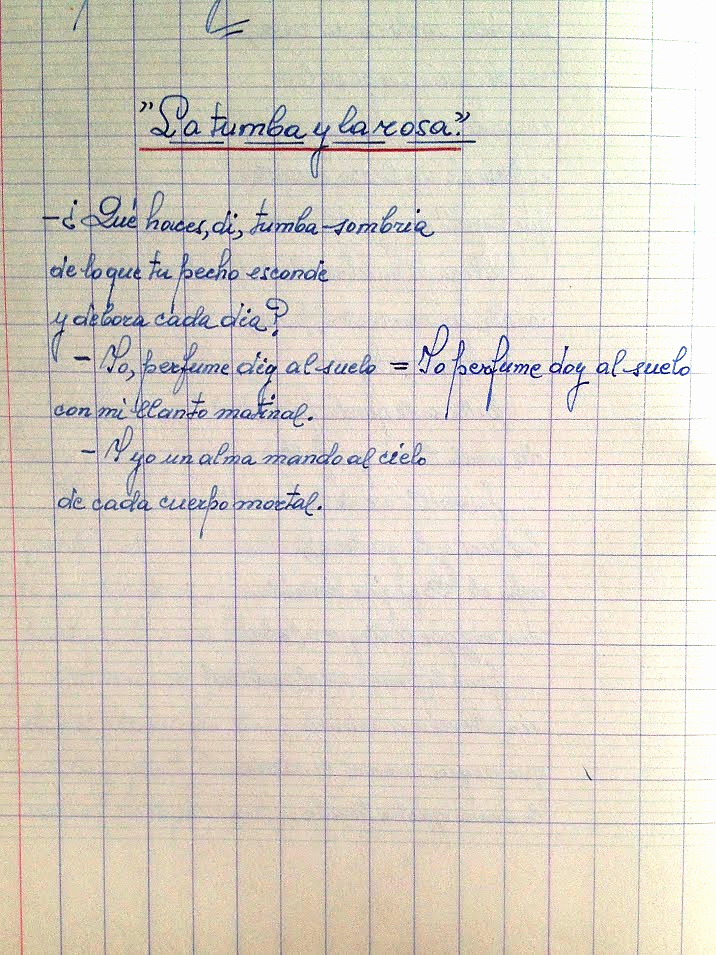 "La tumba y la rosa".
- ¿Qué haces, di, tumba-sombria
de lo que tu pecho esconde
y debora cada dia?
- Yo, perfume diy al suelo = Yo perfume doy al suelo
con mi llanto matinal.
- Y yo un alma mando al cielo
de cada cuerpo mortal.